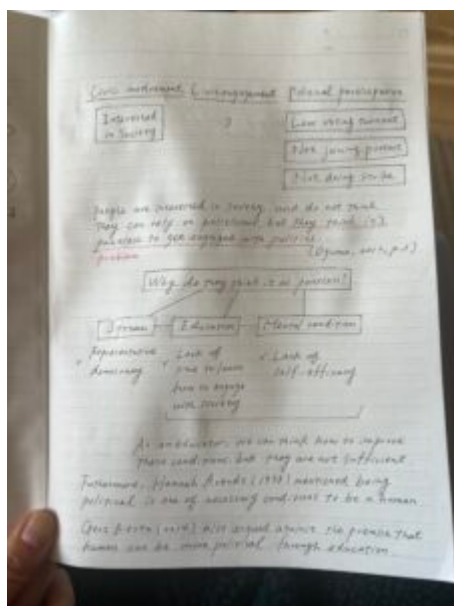 Civic involvement Civic engagement Political participation
Interested in society
?
Low voting turnout
Not joining protest
Not doing strike
People are interested in society, and do not think
they can rely on politicians, but they think it's
pointless to get engaged with politics.
problem
Why do they think it as pointless?
Education
Mental condition
Representative democracy
Lack of
time to learn
how to engage
with society
Lack of
self-efficacy
As an educator, we can think how to improve
these conditions, but they are not sufficient
Furthermore, Hannah Arendt mentioned being
political is one of necessary conditions to be a human.
Gert Biesta also argued against the premise that
human can be more political through education